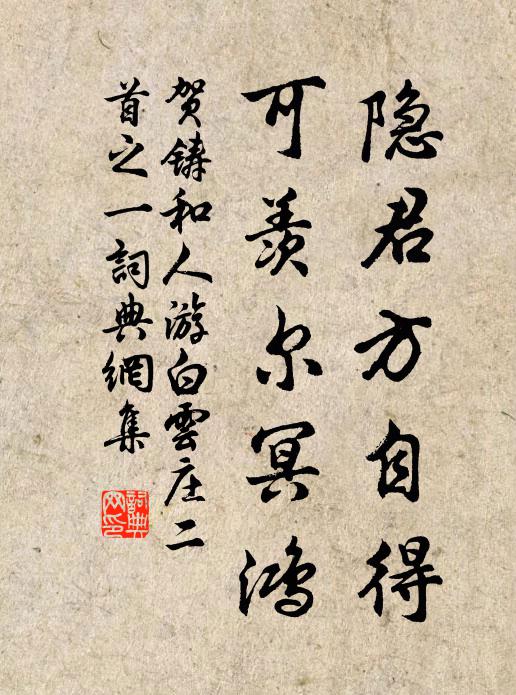 隐君方自得
可羡尔冥鸿
贺铸和人游白雲庄二
首之一詞典網集
詞典网印